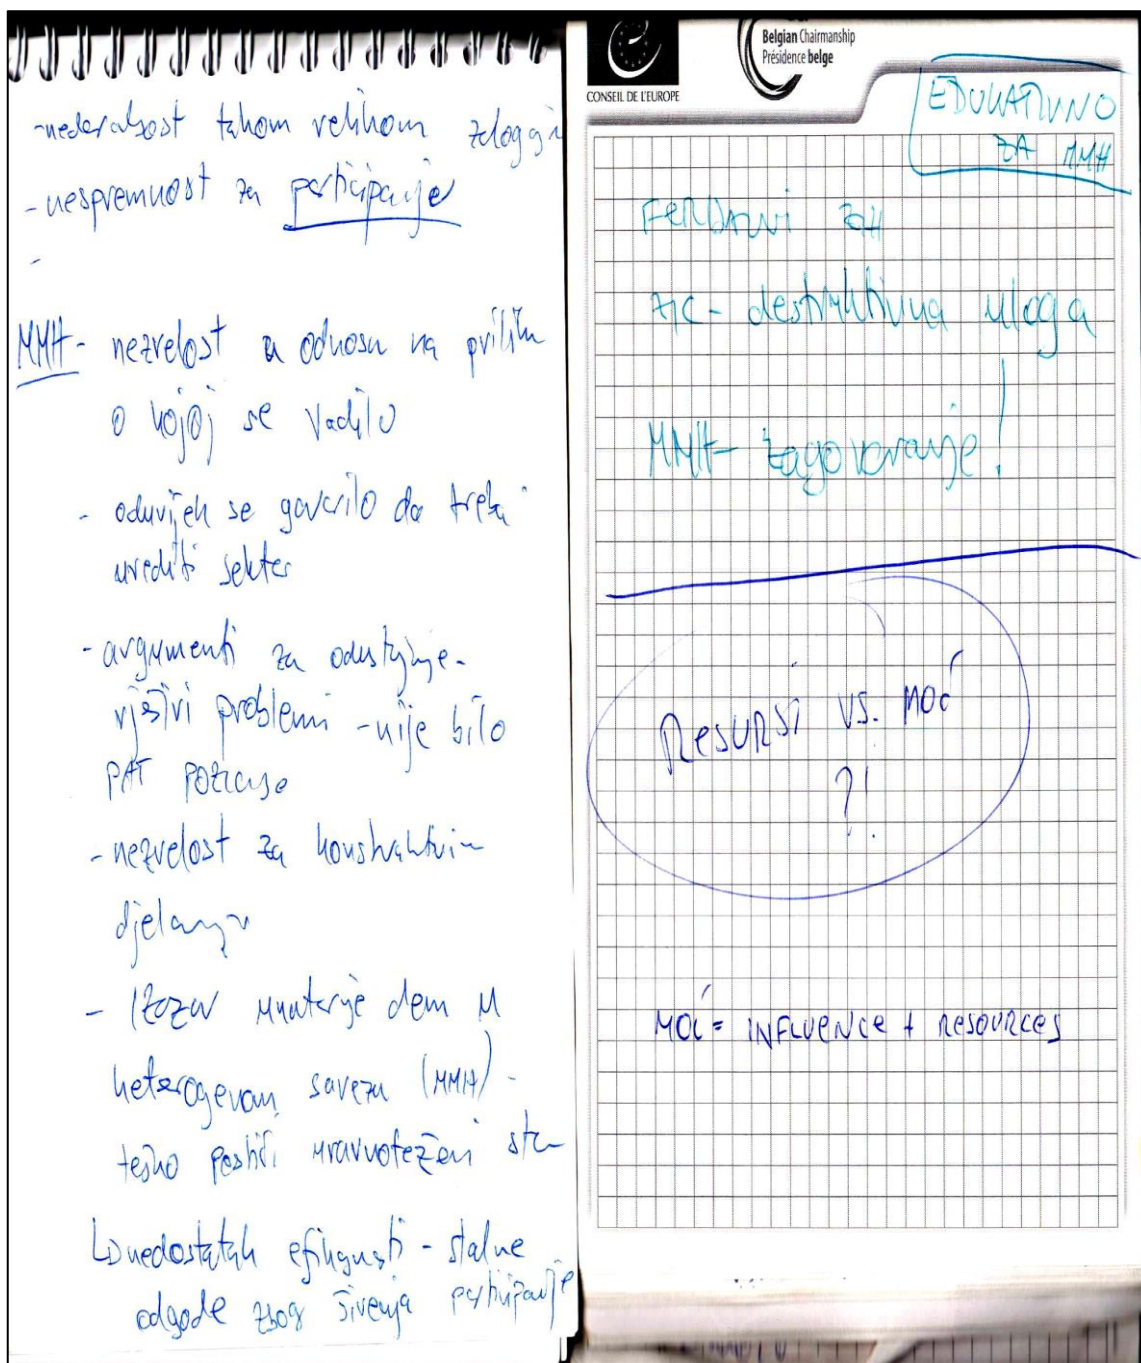 -nedoraslost tehom velikom
-nespremnost za participaciju
-
MMH- nezrelost u odnosu na priliku
o kojoj se radilo
- oduvijek se govorilo da treba
urediti sektor
-argumenti za odustajanje-
rješivi problemi -nije bilo
PAT pozicije
-nezrelost za konstruktivn
djelanje
- Izazov unutarnje dem u
heterogenom savezu (MMH) -
teško postići uravnotežen
nedostatak efikasnosti - stalne
odgode zbog širenja participacije
CONSEIL DE L'EUROPE
Belgian Chairmanship
Présidence belge
EDUKATIVNO
ZA MMH
- destruktivna uloga
MMH- zagovaranje!
Resursi vs. moć
?!
MOĆ = INFLUENCE + RESOURCES